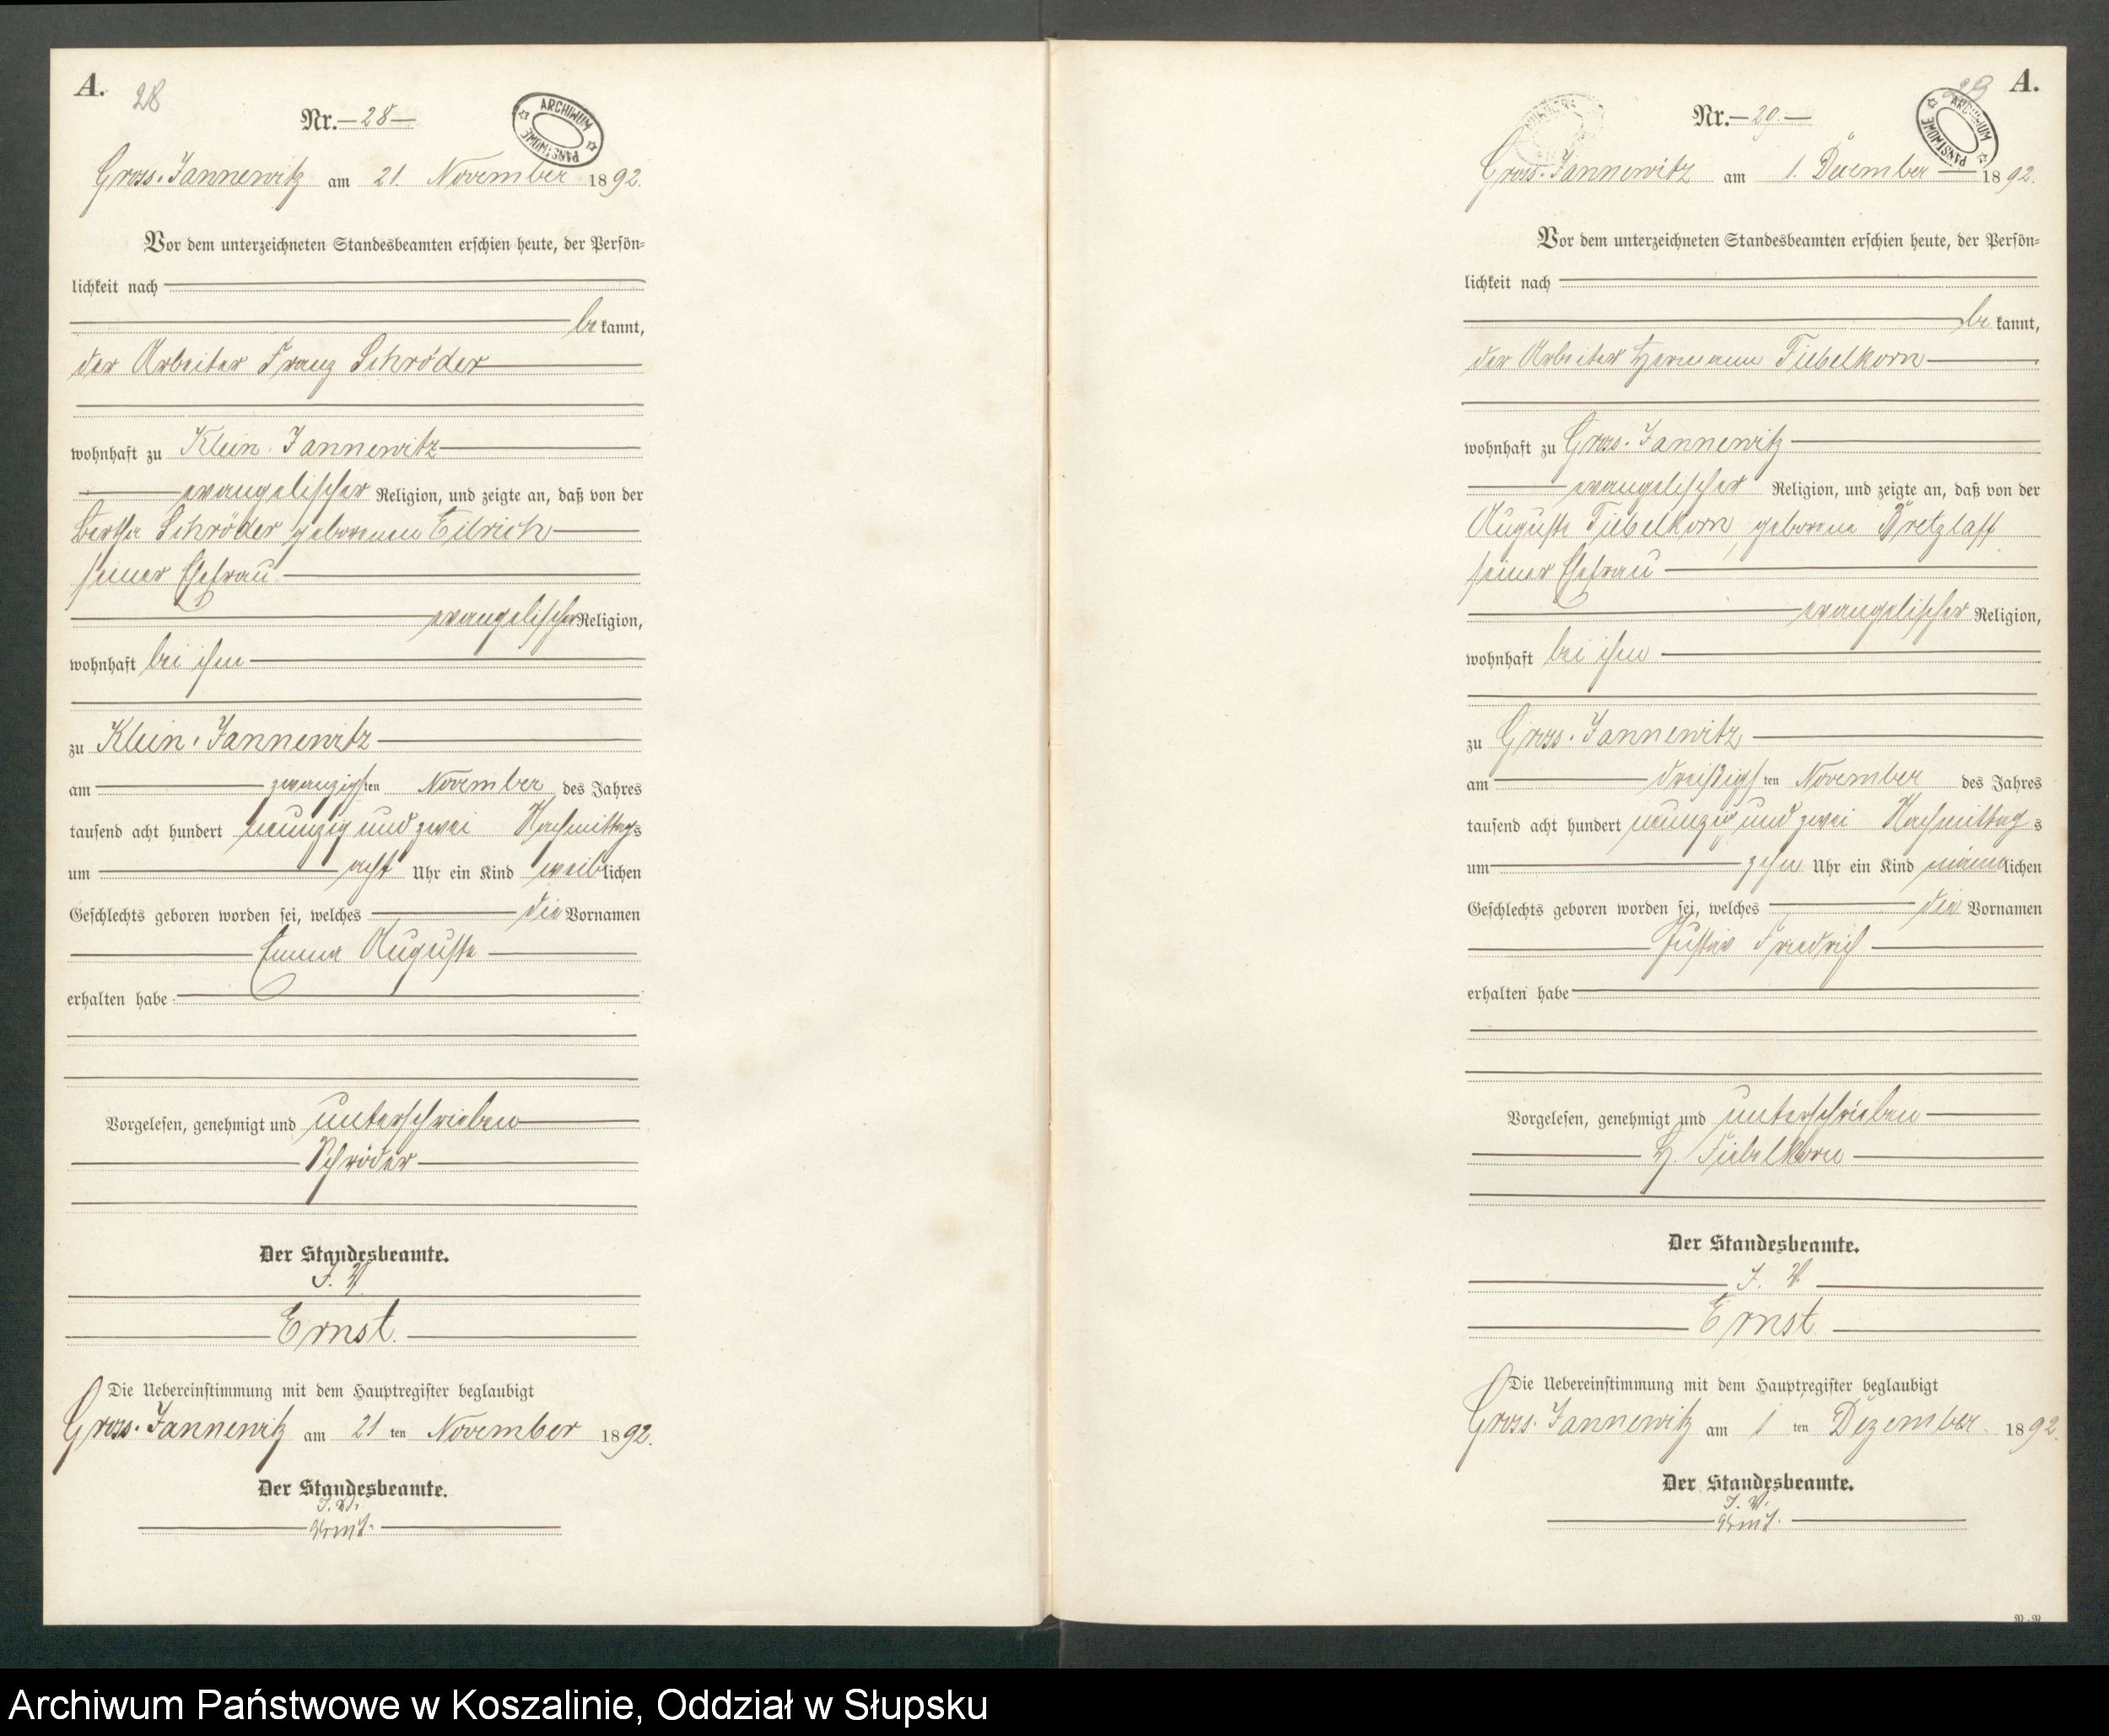 A.
28
Nr. 28
ARCHIWUM PAŃSTWOWE
Gross-Jannewitz am 21. November 1892.
Vor dem unterzeichneten Standesbeamten erschien heute, der Persön=
lichkeit nach
bekannt,
der Arbeiter Franz Schröder
wohnhaft zu Klein-Jannewitz
evangelischer Religion, und zeigte an, daß von der
Bertha Schröder geborenen Eilrich
seiner Ehefrau
evangelischer Religion,
wohnhaft bei ihm
zu Klein-Jannewitz
am zwanzigsten November des Jahres
tausend acht hundert neunzig und zwei Nachmittags
um acht Uhr ein Kind weiblichen
Geschlechts geboren worden sei, welches die Vornamen
Emma Auguste
erhalten habe
Vorgelesen, genehmigt und unterschrieben
Schröder
Der Standesbeamte.
J. V.
Ernst.
Die Uebereinstimmung mit dem Hauptregister beglaubigt
Gross-Jannewitz am 21 ten November 1892.
Der Standesbeamte.
J. V.
Ernst.
A.
29
Nr. 29.
ARCHIWUM PAŃSTWOWE
Gross-Jannewitz am 1. Dezember 1892.
Vor dem unterzeichneten Standesbeamten erschien heute, der Persön=
lichkeit nach
bekannt,
der Arbeiter Hermann Tiebelkorn
wohnhaft zu Gross-Jannewitz
evangelischer Religion, und zeigte an, daß von der
Auguste Tiebelkorn, geborene Bretzlaff
seiner Ehefrau
evangelischer Religion,
wohnhaft bei ihm
zu Gross-Jannewitz
am dreißigsten November des Jahres
tausend acht hundert neunzig und zwei Nachmittags
um zehn Uhr ein Kind männlichen
Geschlechts geboren worden sei, welches die Vornamen
Gustav Friedrich
erhalten habe
Vorgelesen, genehmigt und unterschrieben
H. Tiebelkorn
Der Standesbeamte.
J. V.
Ernst
Die Uebereinstimmung mit dem Hauptregister beglaubigt
Gross-Jannewitz am 1 ten Dezember 1892.
Der Standesbeamte.
J. V.
Ernst.
Archiwum Państwowe w Koszalinie, Oddział w Słupsku